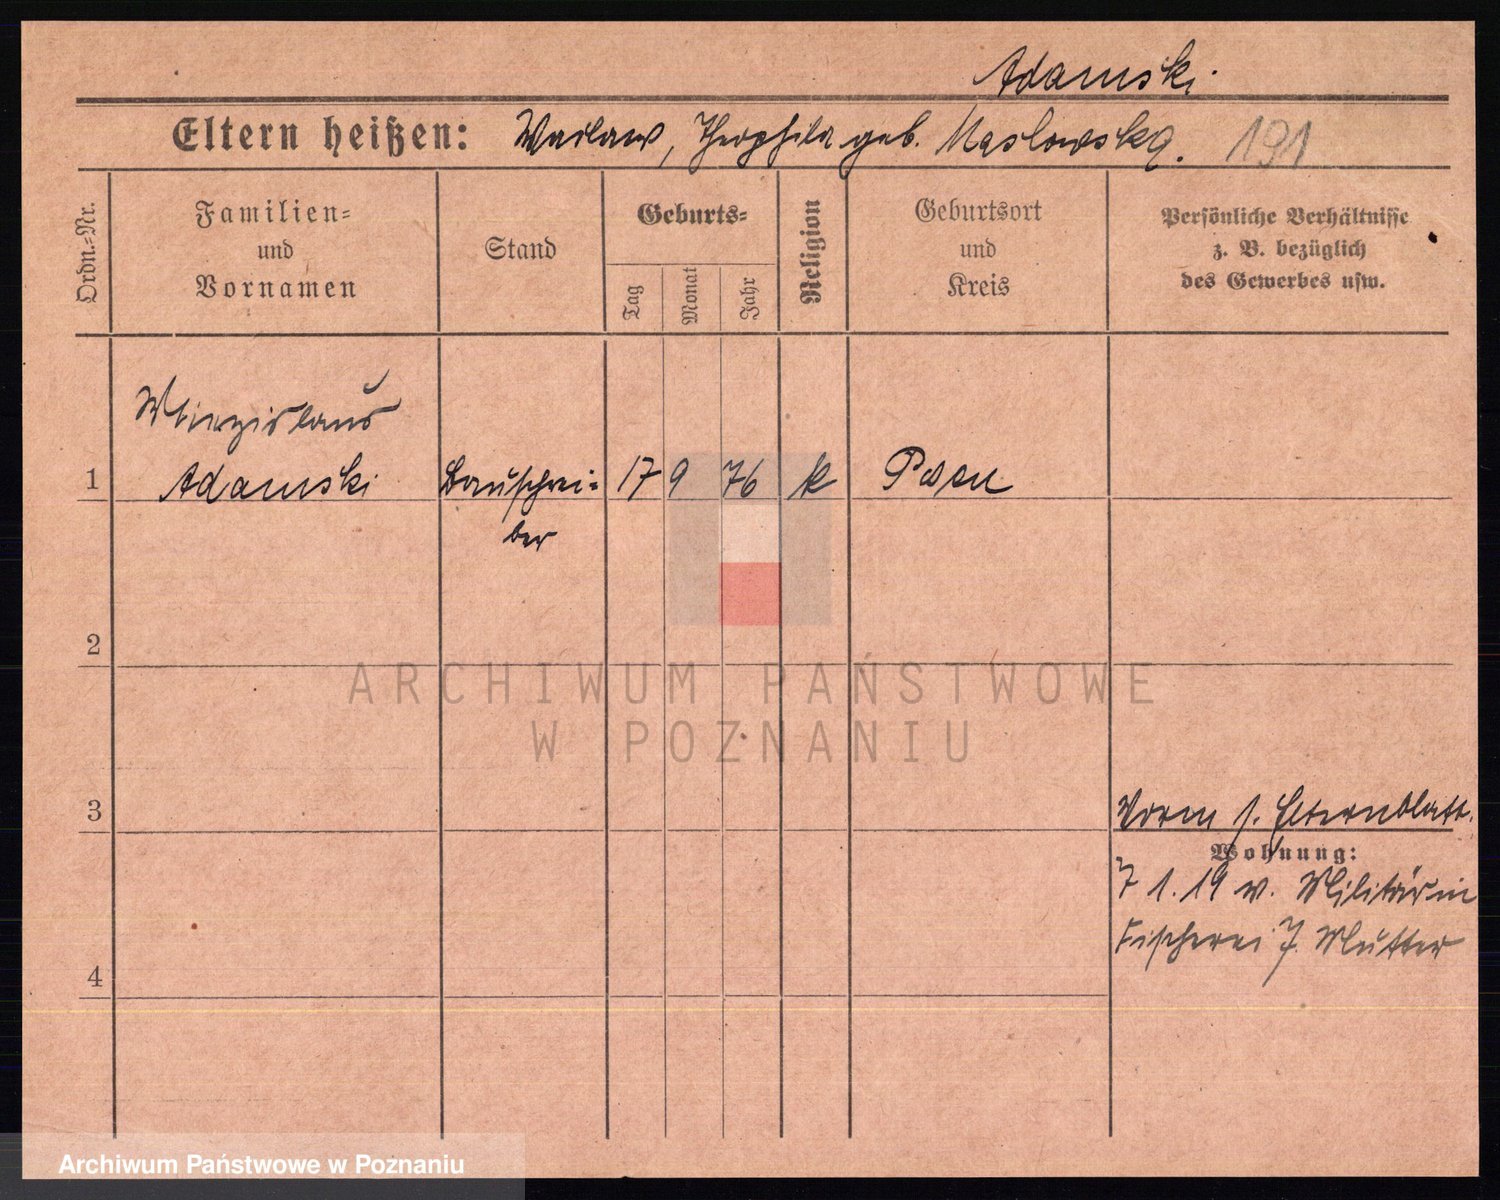 Adamski.
Eltern heißen: Waclaw, Theophila geb. Maslowska. 191
Ordn.-Nr.
Familien-
und
Vornamen
Stand
Geburts-
Tag
Monat
Jahr
Religion
Geburtsort
und
Kreis
Persönliche Verhältnisse
z. B. bezüglich
des Gewerbes usw.
1
Adamski
Bauschrei-
ber
17 9 76 k Posen
2
ARCHIWUM PAŃSTWOWE
W POZNANIU
3
Vorm s. Elternblatt.
Wohnung:
7 1. 19 v. Militär in
Fischerei 7. Mutter
4
Archiwum Państwowe w Poznaniu